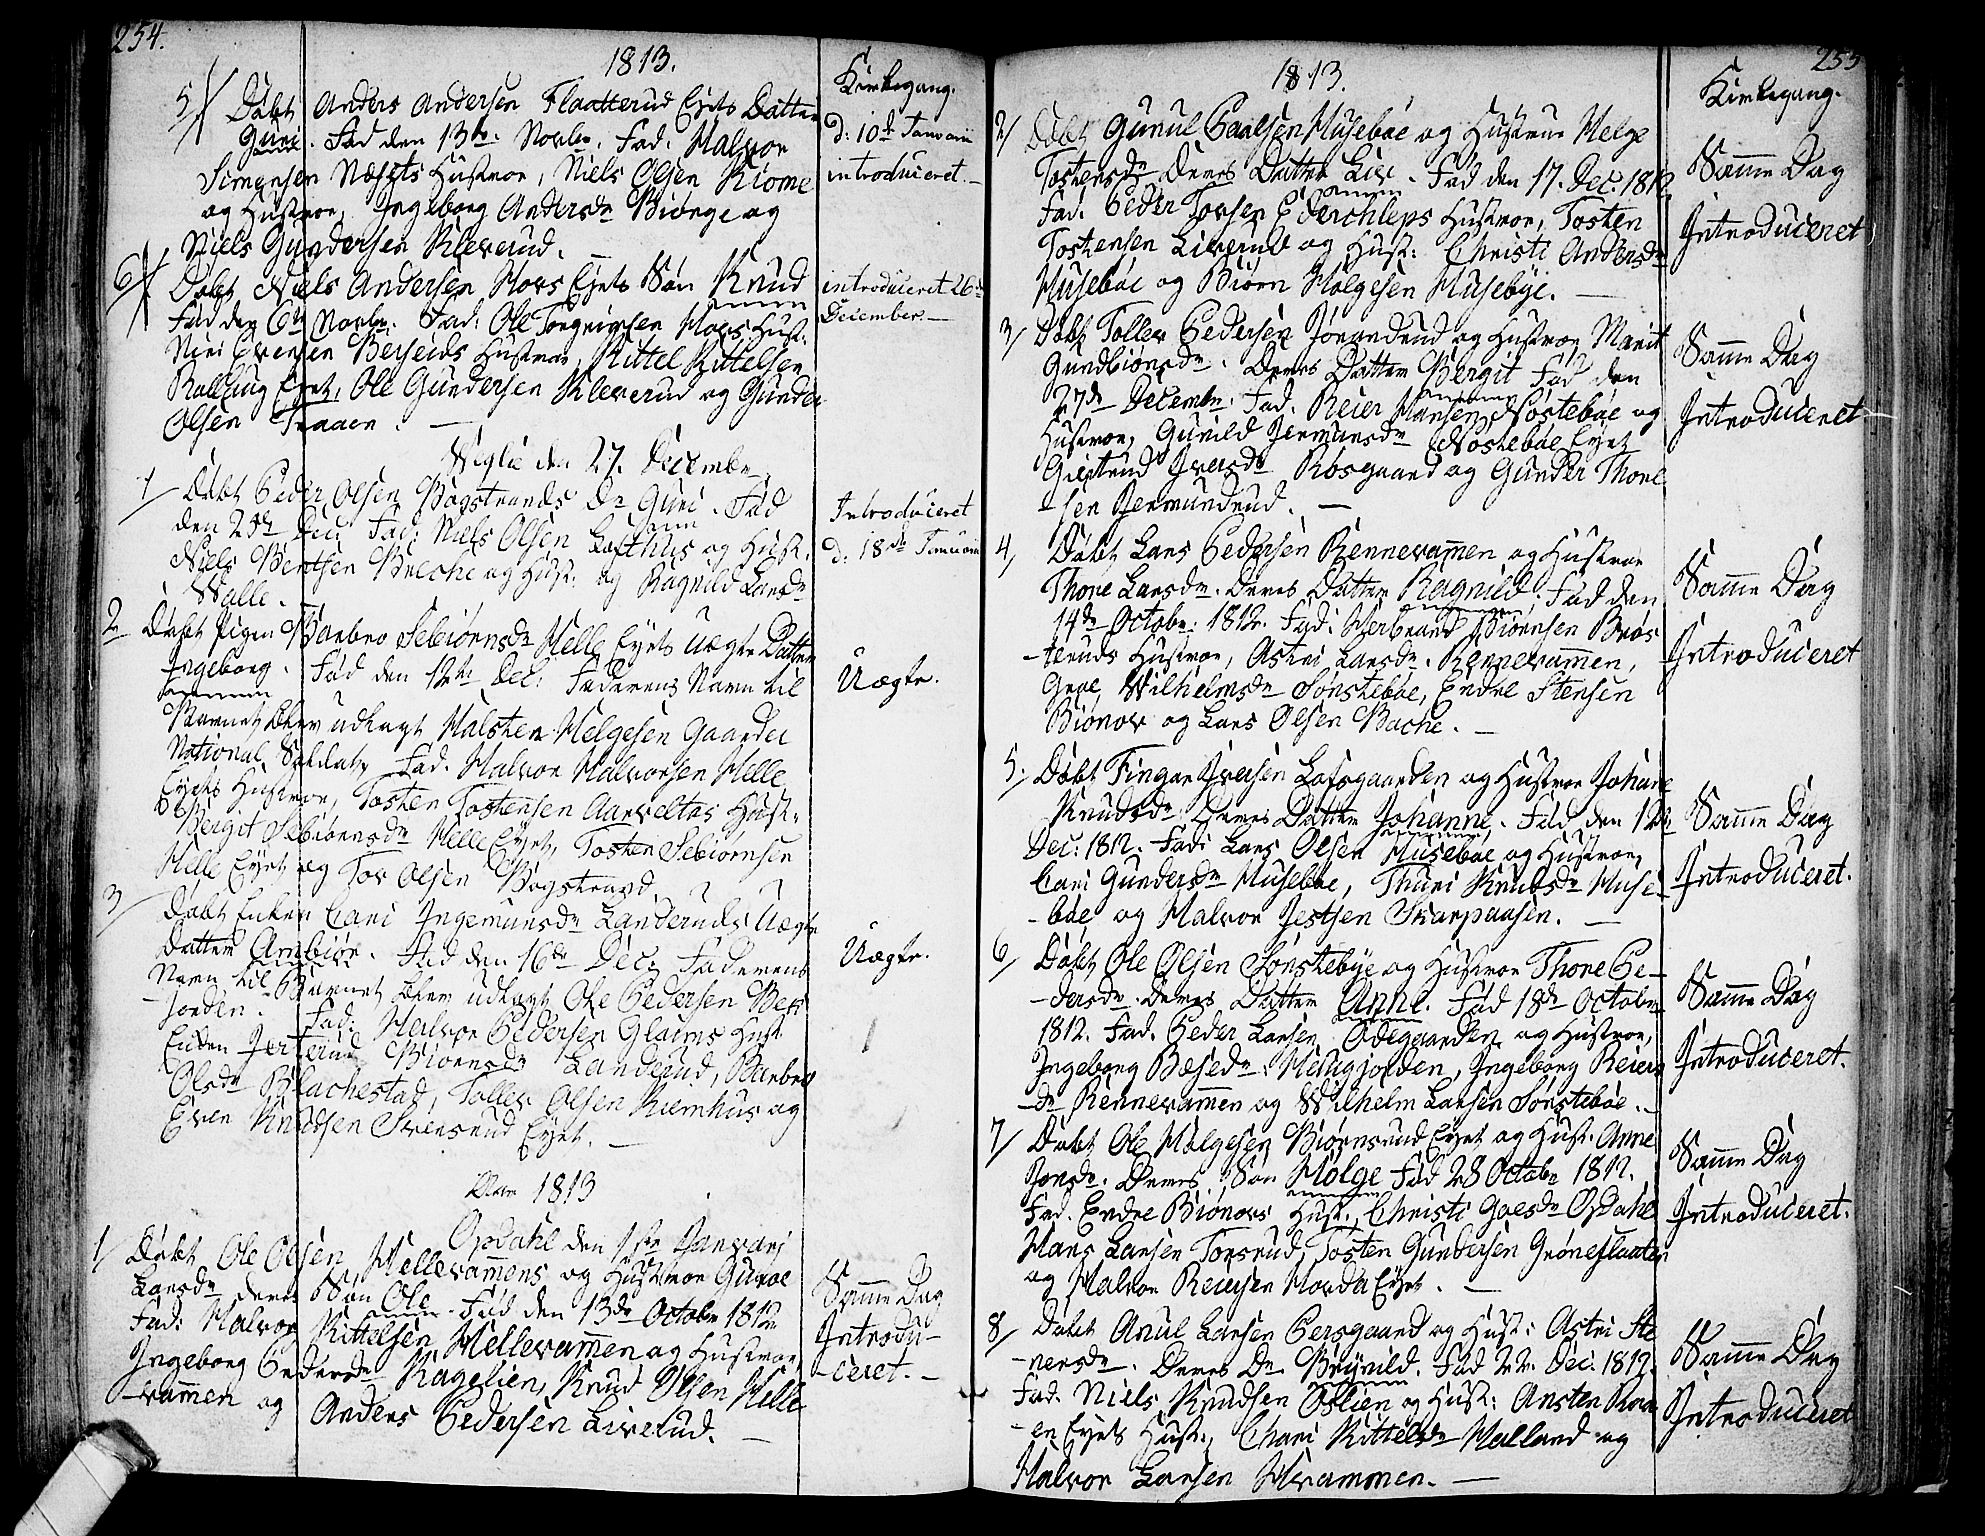 254.
1813.
Kirkegang.
5/ Döbt Anders Andersen Flaatterud Eyets Datter
Guri. Fød den 13de Novbr. Fad. Halvor
Simensen Næsets Hustroe, Niels Olsen Kiome
og Hustroe, Ingeborg Andersdr Biønge og
Niels Gundersen Kleverud.
D: 10de Januarii
introduceret.
6/ Döbt Niels Andersen Mors Eyets Søn Knud
Fød den 6te Novbr: Fad: Ole Torgrimsen Moes Hust.
Niri Evensen Berseids Hustroe, Kittel Kittelsen
Eyet, Ole Gundersen Kleverud og Gunder
Olsen Traaen.
introduceret 26de
December.
Veglie den 27. Decembr
1/ Döbt Peder Olsen Bogstrands Dr Guri. Fød
den 25de Dec: Fad: Niels Olsen Lofthus og Hust.
Niels Bentsen Breche og Hust: og Ragnild Larsdr
Valle.
Introduceret
D: 18de Januarii
2 Döbt Pigen Barbro Sebiörnsdr Helle Eyets Uægte Datter
Ingeborg. Fød den 12te Dec: Faderens Navn til
Barnet blev udlagt Halsten Helgesen Gaarder
National Soldat, Fad. Halvor Halvorsen Helle
Eyets Hustroe, Tosten Tostensen Aarveltas Hust.
Bergit Sebiörnsdr Helle Eyet, Tosten Sebiörnsen
Helle Eyet og Tor Olsen Bogstrand.
Uægte.
3/ Döbt Enken Cari Ingemunsdr Landeruds Uægte
Datter Ambiör. Fød den 16de Dec: Faderens
Navn til Barnet blev udlagt Ole Pedersen Ber
jorden. Fad: Halvor Pedersen Glaims Hust
Enken Jertrud Biörnsdr Landerud, Barbro
Olsdr Blachestad, Tollev Olsen Kiemhus og
Even Knudsen Svensrud Eyet.
Uægte.
Aar 1813
Opdahl den 1ste Januarj
1/ Döbt Ole Olsen Hellevamens og Hustroe Guroe
Larsdr deres Søn Ole. Fød den 13de Octobr 1812
Fad: Halvor Kittelsen Hellevammen og Hustroe,
Ingeborg Pedersdr Ragelien, Knud Olsen Helle
-vammen og Anders Pedersen Liverud.
Samme Dag
Introdu-
-ceret.
255
1813.
Kirkegang.
2/ Döbt Gunul Paalsen Musebøe og Hustrue Helge
Tostensdr Deres Datter Liv. Fød den 17. Dec. 1812
Fad. Peder Torsen Ederchleps Hustroe, Tosten
Tostensen Liverud og Hust: Christi Andersdr
Musebøe og Biörn Holgesen Musebye.
Samme Dag
Introduceret
3/ Döbt Tollev Pedersen Jørandrud og Hustroe Marit
Gundbiönsdr. Deres Datter Bergit Fød den
27de Decembr. Fad. Reier Hansen Nørstebøe og
Hustroe, Gunild Jermunsdr Nørstebøe Eyet
Giertrud Iversdr Røsgaard og Gunder Thore
sen Jermundrud.
Samme Dag
Introduceret
4, Döbt Lars Pedersen Rennevamen og Hustroe
Thore Larsdr. Deres Datter Ragnild. Fød den
14de Octobr. 1812. Fad: Herbrand Biörnsen Brøs
-teruds Hustroe, Astri Larsdr. Rennevammen,
Groe Wilhelmsdr Sønstebøe, Endre Stensen
Bionor og Lars Olsen Bache.
Samme Dag
Introduceret
5. Döbt Fingar Iversen Lofsgaarden og Hustroe Johane
Knudsdr Deres Datter Johanne. Fød den 12te
Dec: 1812. Fad: Lars Olsen Musebøe og Hustroe,
Cari Gundersdr Musebøe, Thuri Knudsdr Muse-
-bøe og Halvor Jestsen Skarpaasen.
Samme Dag
Introduceret.
6/ Döbt Ole Olsen Sønstebye og Hustroe Thore Pe-
-dersdr. Deres Datter Anne. Fød 18de Octobr
1812. Fad. Peder Larsen Ødegaarden og Hustroe,
Ingeborg Bæsedr. Hellugjorden, Ingeborg Reiers
-dr Rennevammen og Wilhelm Larsen Sønstebøe.
Samme Dag
Introduceret.
7/ Döbt Ole Holgesen Biörnsrud Eyet og Hust. Anne
Jonsdr. Deres Søn Holge Fød 28 Octobr 1812.
Fad. Endre Bionors Hust., Christi Goesdr Opdahl
Hans Larsen Torsrud, Tosten Gundersen Grøneflaaten
og Halvor Reiersen Horda Eyet.
Samme Dag
Introduceret.
8/ Döbt Anul Larsen Persgaard og Hust: Astri Ste
-nersdr. Deres Dr Brynild. Fød 22. Dec. 1812.
Fad. Niels Knudsen Oslien og Hust: Ansten Kra
-en Eyets Hust., Chari Kittelsdr Halland og
Halvor Larsen Hvammen.
Samme Dag
Introduceret